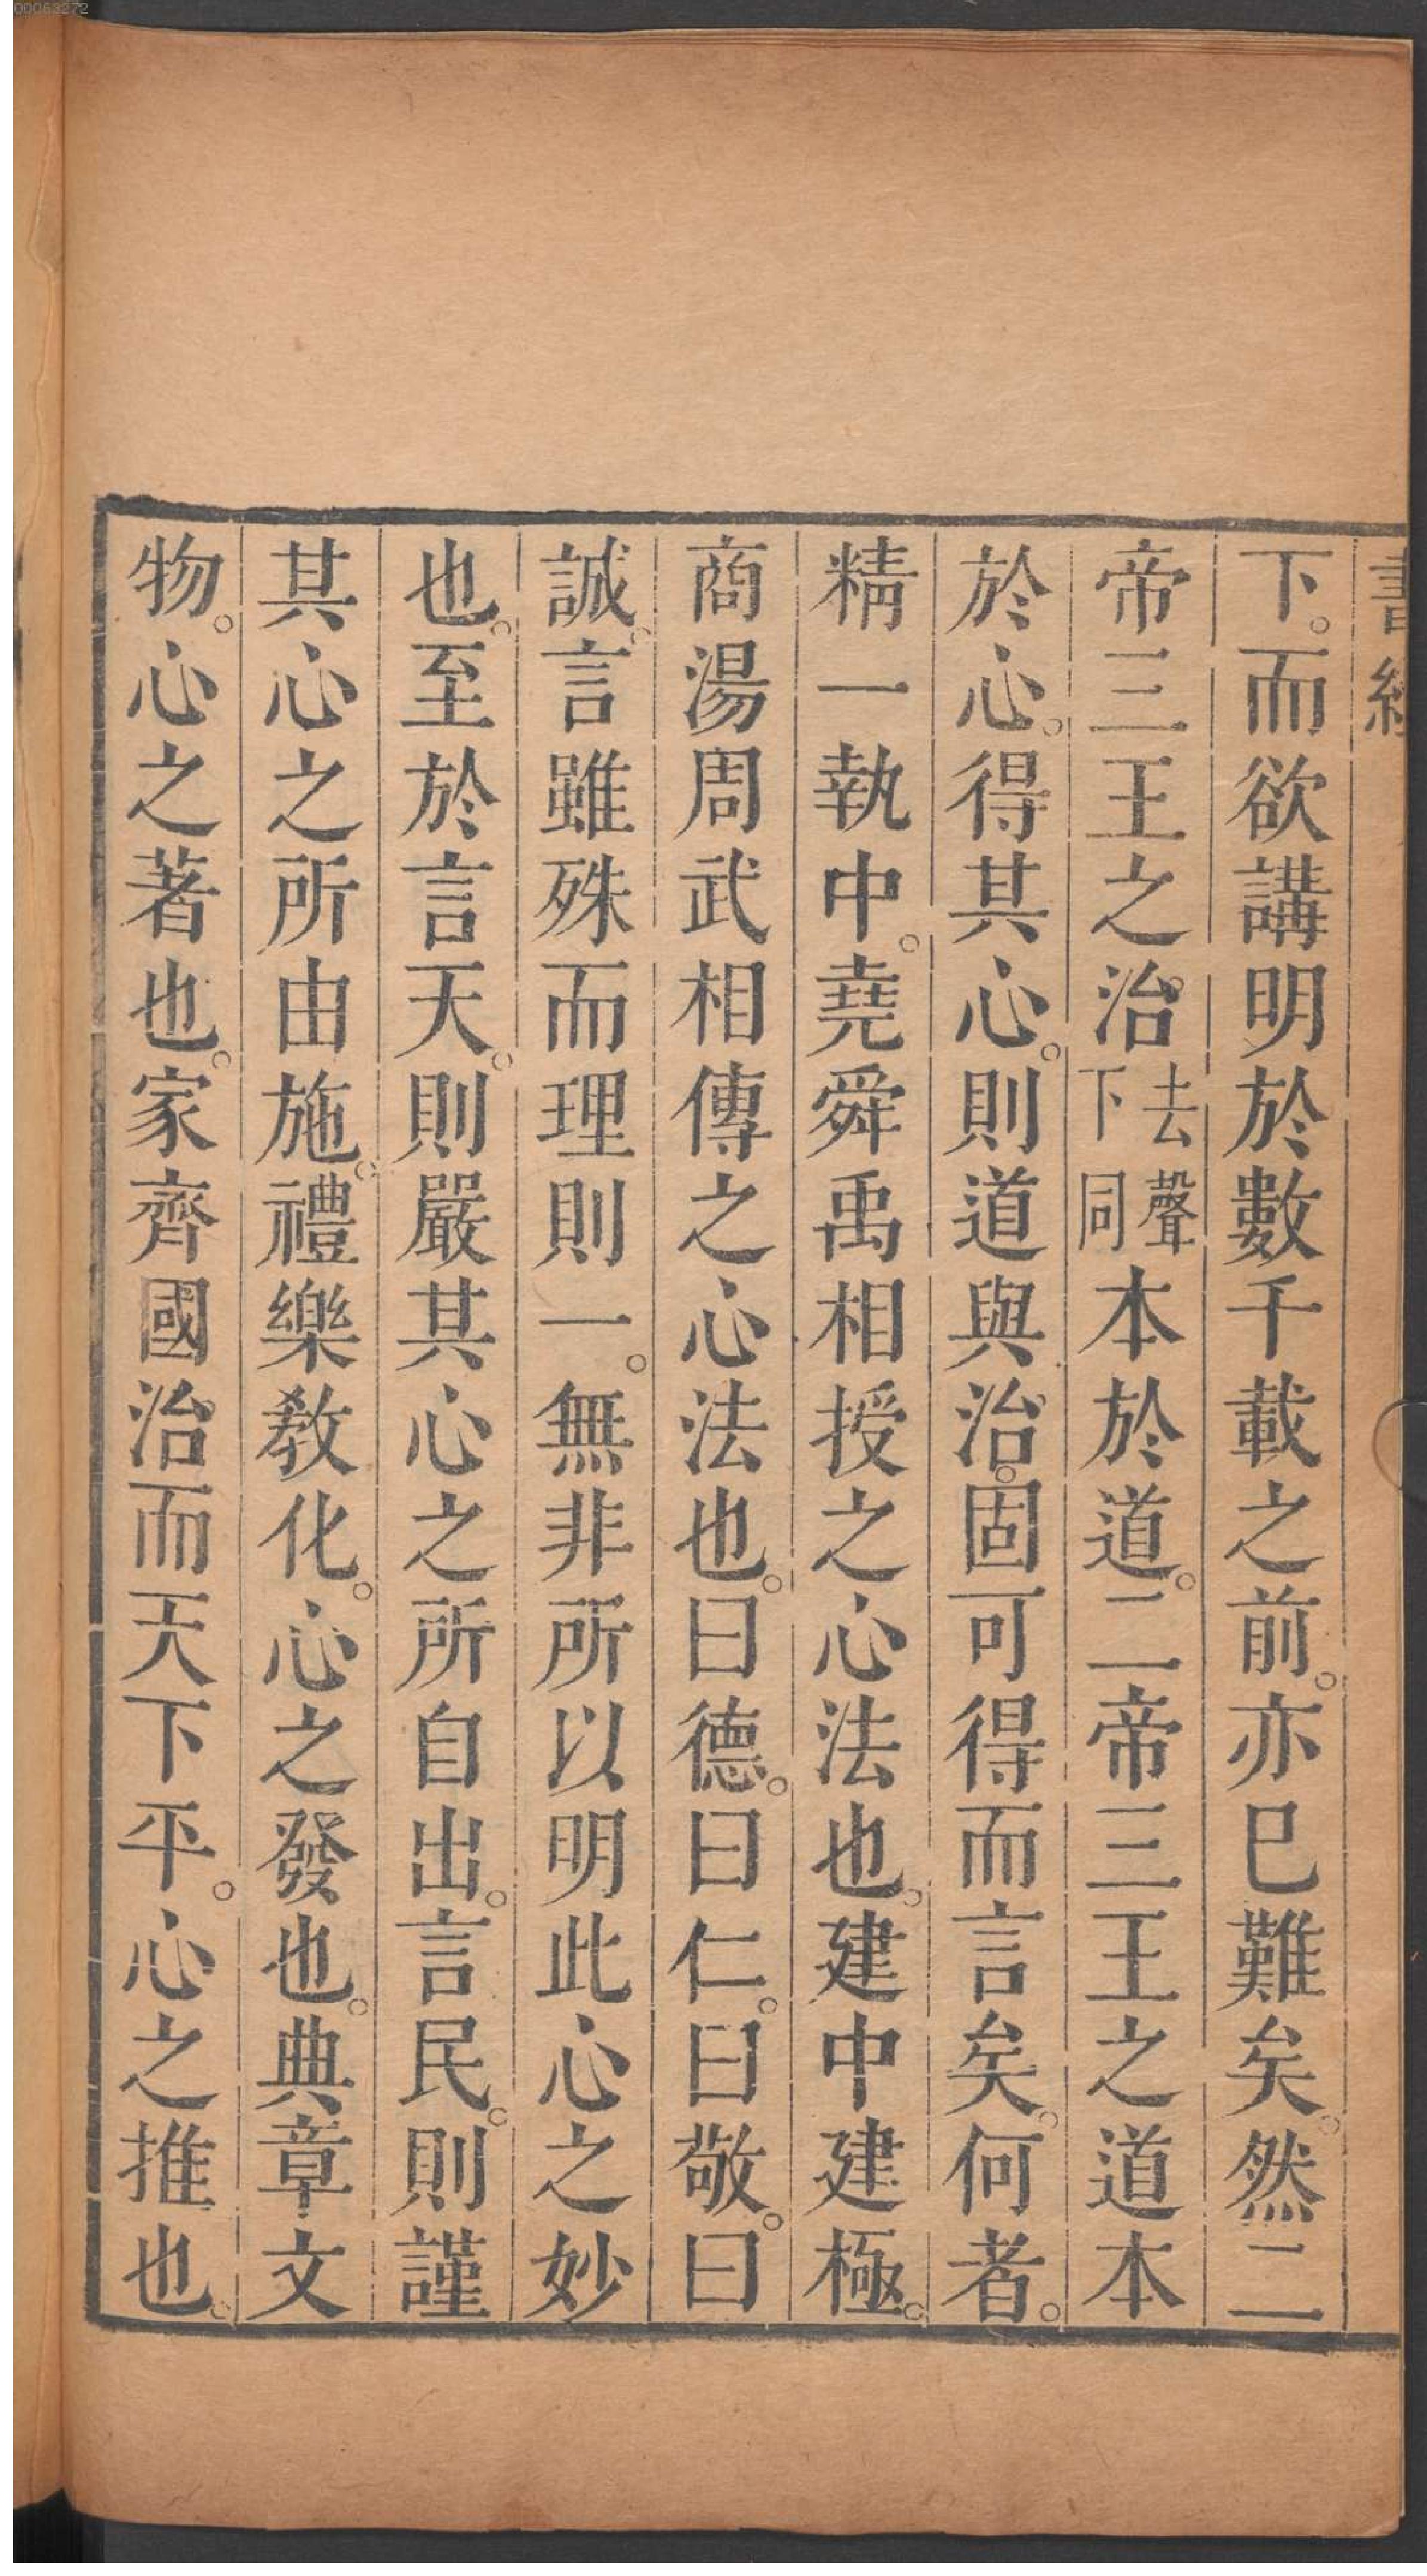 00063272
書經
下。而欲講明於數千載之前。亦已難矣。然二
帝三王之治去聲下同本於道。二帝三王之道本
於心。得其心。則道與治。固可得而言矣。何者。
精一執中。堯舜禹相授之心法也。建中建極。
商湯周武相傳之心法也。曰德。曰仁。曰敬。曰
誠。言雖殊而理則一。無非所以明此心之妙
也。至於言天。則嚴其心之所自出。言民。則謹
其心之所由施。禮樂敎化。心之發也。典章文
物。心之著也。家齊國治而天下平。心之推也。